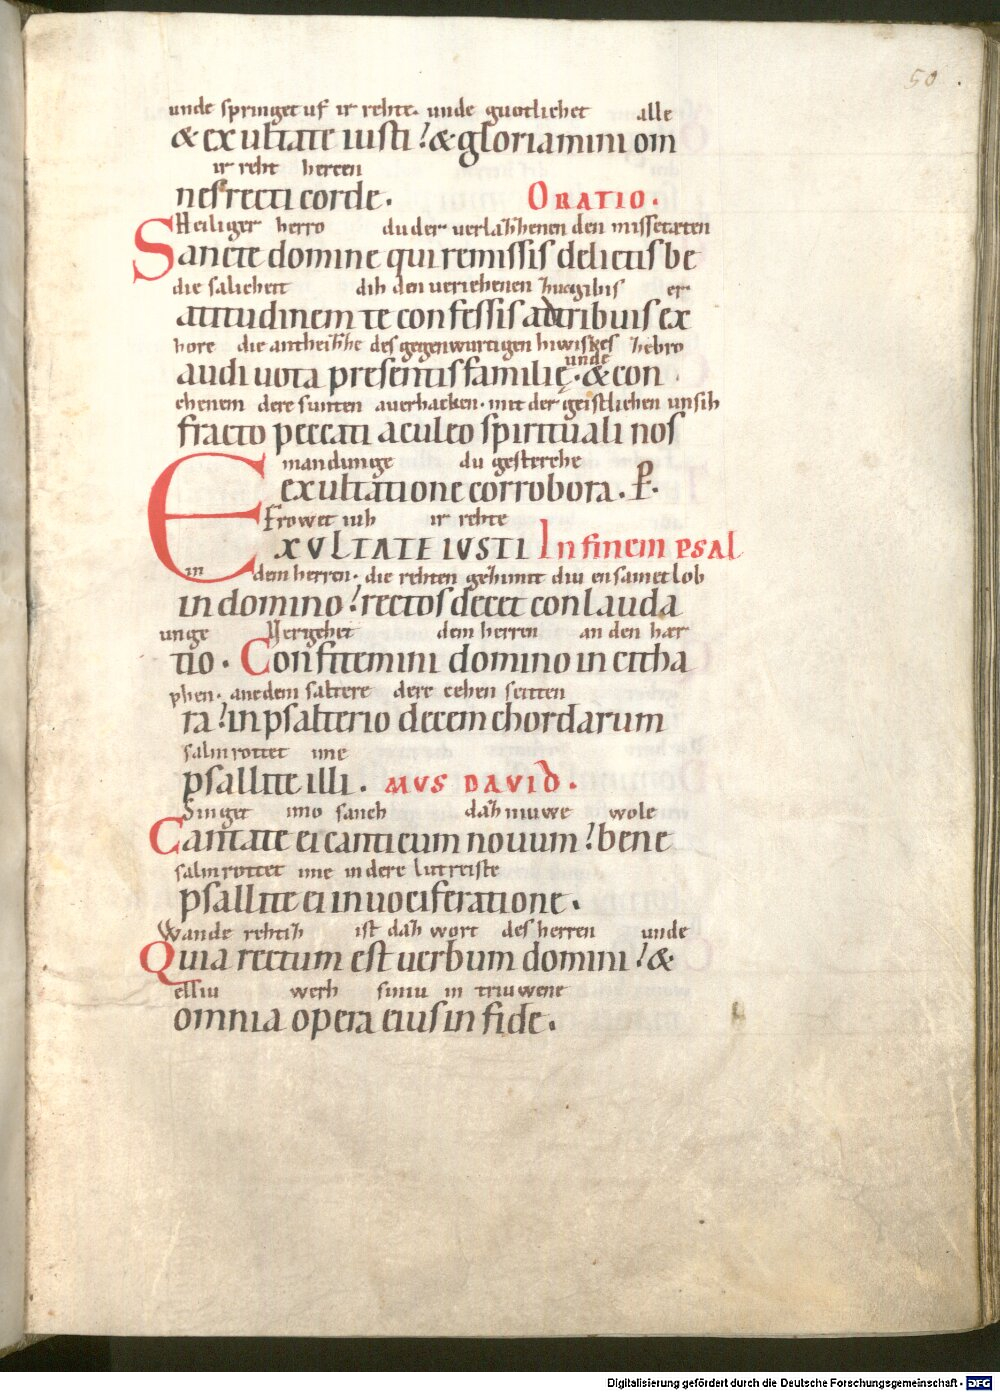 50
unde springet uf ir rehte. unde guotlichet alle
& exultate iusti? & gloriamini om
ir reht hercen
nes recti corde. ORATIO.
Heiliger herro du der verlahhenen den missetæten
Sancte domine qui remissis delictis be
die salicheit dih den veriehenen er
atitudinem te confessis adtribuis ex
hore die antheihhe des gegenwurtigen hiwiskes unde zebro
audi uota presentis familię. & con
chenem dere sunten averhacken. mit der geistlichen unsih
fracto peccati aculeo spirituali nos
mandunge du gesterche
exultatione corrobora. P.
Frowet iuh ir rehte
EXULTATE IUSTI In finem PSAL
in dem herren. die rehten gehimit diu ensamet lob
in domino? rectos decet conlauda
unge Vergehet dem herren an den har
tio. Confitemini domino in citha
phen. anedem saltere dere cehen seitten
ra? in psalterio decem chordarum
salmrottet ime
psallite illi. MUS DAVID.
Singet imo sanch dah niuwe wole
Cantate ei canticum nouum? bene
salmrottet ime in dere lutreiste
psallite ei in uociferatione.
Wande rehtih ist dah wort des herren unde
Quia rectum est uerbum domini? &
elliu werh siniu in triuwene
omnia opera eius in fide.
Digitalisierung gefördert durch die Deutsche Forschungsgemeinschaft - DFG